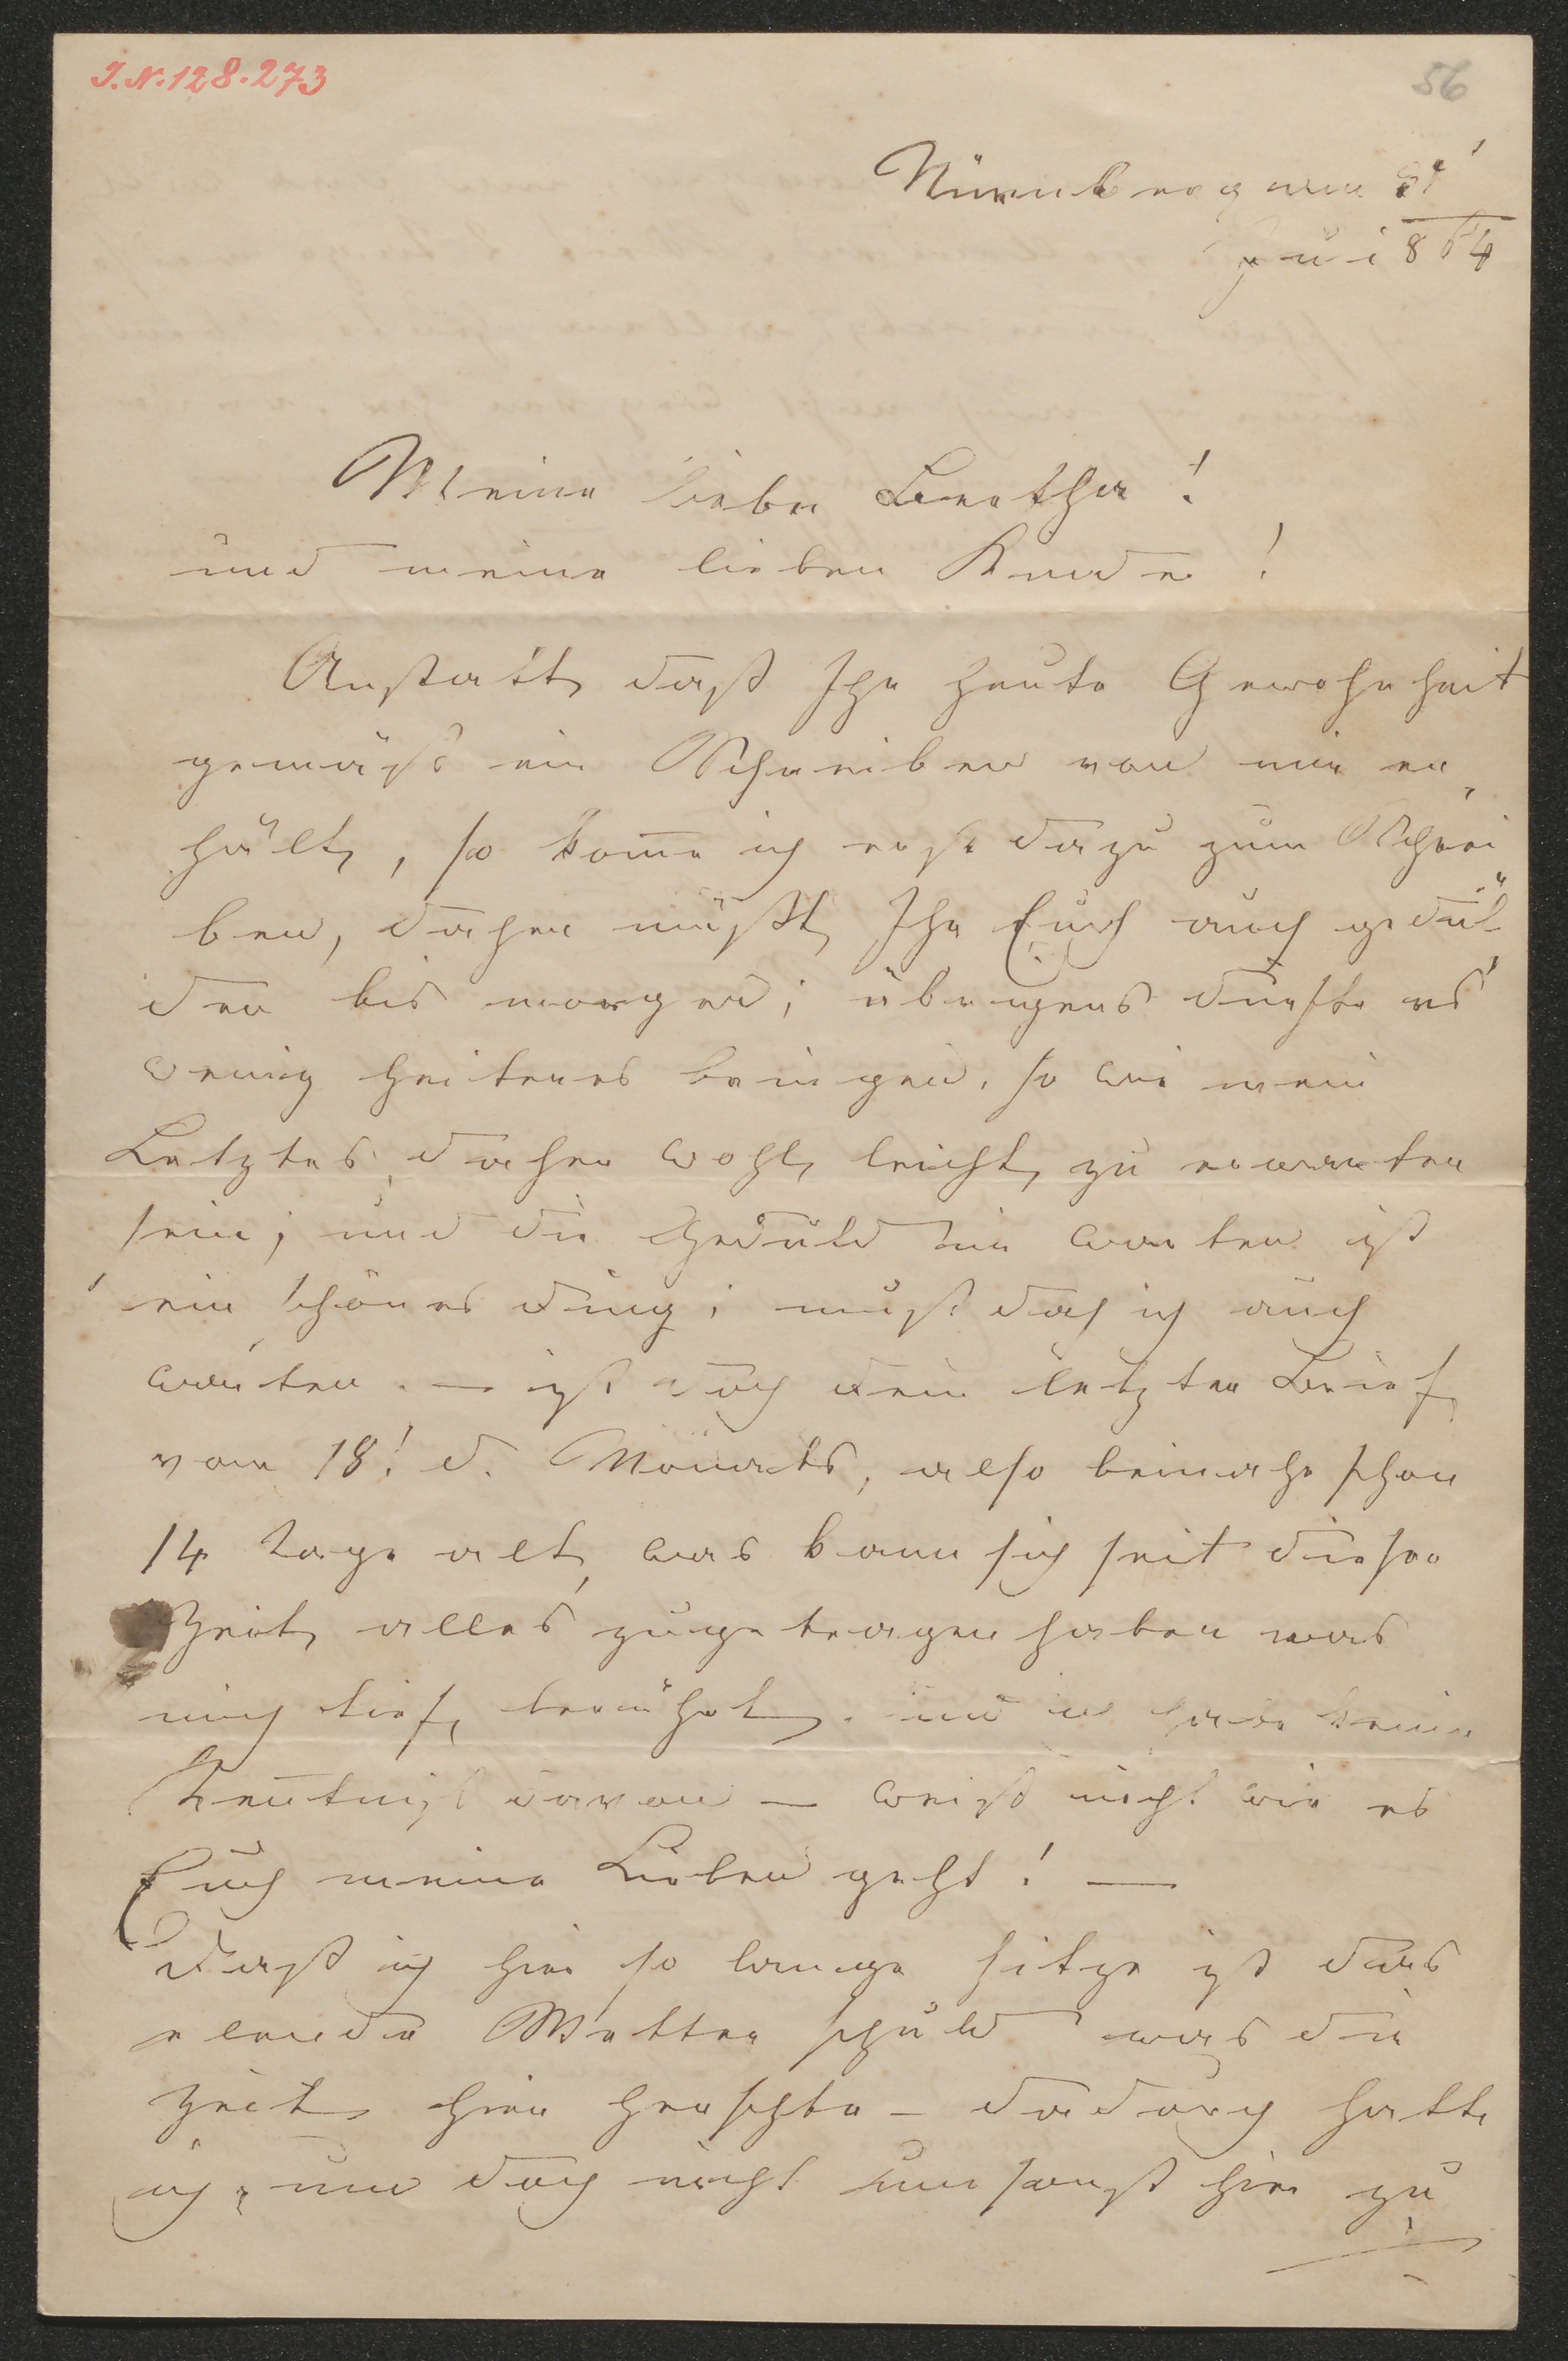 I.N. 128.273
56
Nürnberg am
Juni 864
Meine liebe Bertha!
und meine lieben Kinder!
Anstatt daß Ihr heute Gewohnheit
gemäß ein Schreiben von mir er
hält, so kome ich erst dazu zum Schrei
ben, daher müßt Ihr Euch auch gedul
den bis morgen; übrigens dürfte es
wenig heiteres bringen, so wie mein
Letztes, daher wohl leicht zu erwarten
sein; und die Geduld im warten ist
ein schönes Ding; muß doch ich auch
warten. — ist doch dein letzter Brief
vom 18! d. Monats, also beinahe schon
14 Tage alt, was kann sich seit dieser
Zeit alles zugetragen haben was
mich tief berührt, und ich habe keine
Kentniß davon — weiß nicht wie es
Euch meine Lieben geht! —
Daß ich hier so lange sitze ist das
elende Wetter schuld was die
Zeit hier herschte — dadurch hatte
ich, um doch nicht umsonst hier zu